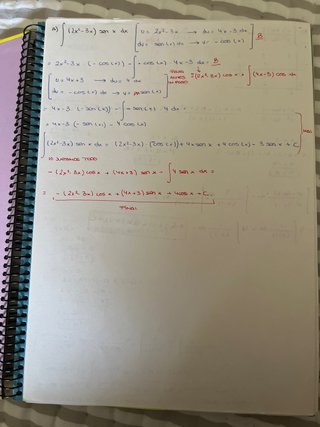 ∫(2x²-3x) sen x dx [u = 2x²-3x → du = 4x-3 dx
dv = sen(x) dx → v = -cos(x)] B
= 2x²-3x · (-cos(x)) - ∫-cos(x) · 4x-3 dx = B
[u = 4x+3 → du = 4 dx
= (2x²-3x) cos x + ∫(4x-3) cos x dx
dv = -cos(x) dx → v = sen(x)]
= 4x-3 · (-sen(x)) - ∫-sen(x) 4 dx =
= 4x-3 · (-sen(x)) - 4 cos(x)
∫(2x²-3x) sen x dx = (2x²-3x) · (cos(x)) + 4x sen x + 4 cos(x) - 3 sen x + C
si juntamos todo
-(2x²-3x) cos x + (4x+3) sen x - ∫4 sen x dx =
= -(2x²-3x) cos x + (4x+3) sen x + 4cos x + C.